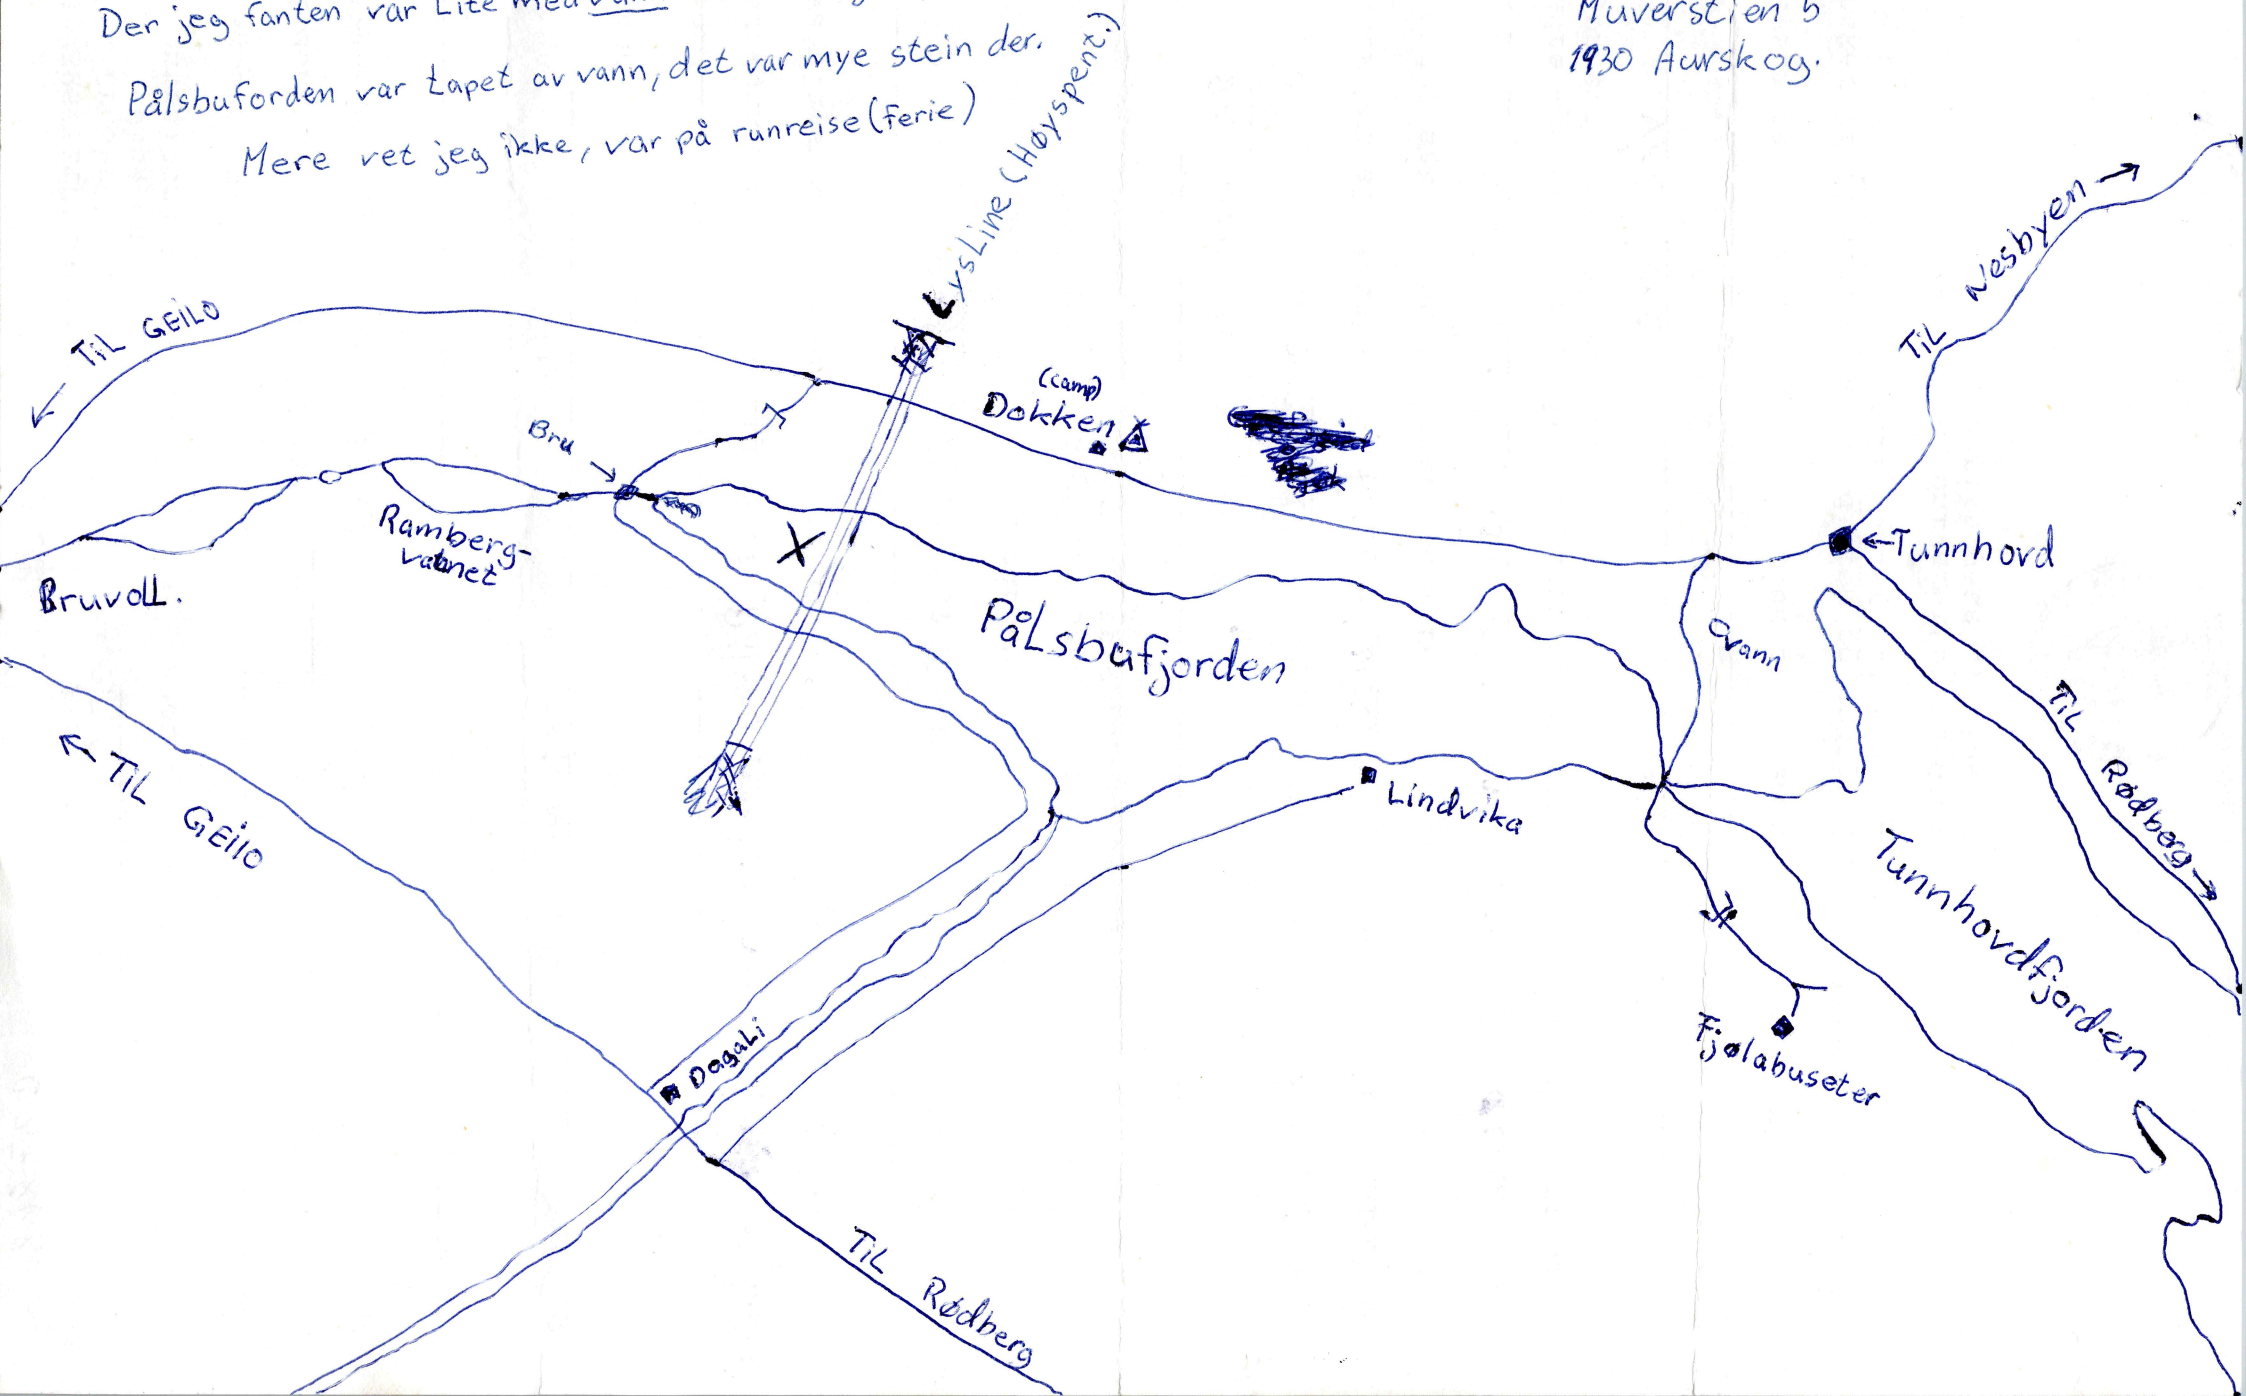 Der jeg fanten var Lite med vann
Pålsbuforden var tapet av vann, det var mye stein der.
Mere vet jeg ikke, var på runreise (ferie)
Muverstien 5
1930 Aurskog.
LysLine (Høyspent.)
TiL GEiLO
Bru
(camp)
Dokken
TiL Nesbyen →
Ramberg-
vatnet
Bruvoll.
X
PåLsbufjorden
←Tunnhovd
vann
TiL Rødberg →
← TiL GEilO
Lindvika
Tunnhovdfjorden
DagaLi
Fjølabuseter
TiL Rødberg